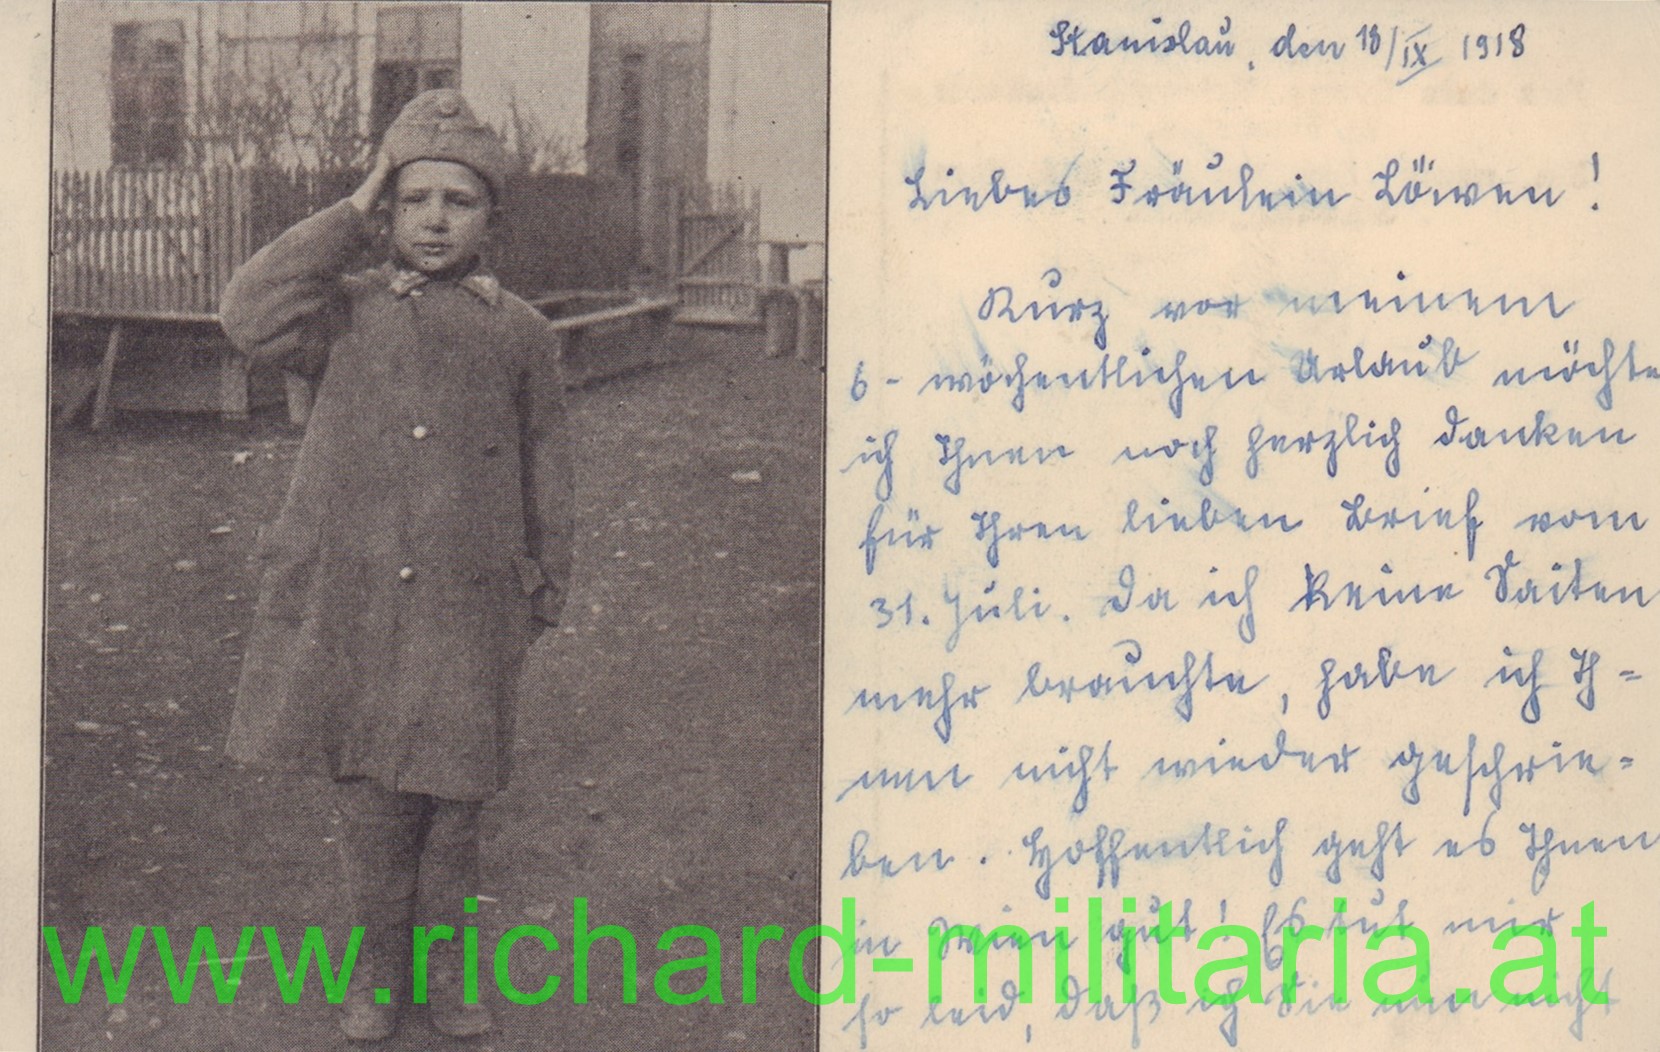 Stanislau, den 18/IX 1918
Liebes Fräulein Löwen!
Kurz vor meinem
6-wöchentlichen Urlaub möchte
ich Ihnen noch herzlich danken
für Ihren lieben Brief vom
31. Juli. Da ich keine Saiten
mehr brauchte, habe ich Ih=
nen nicht wieder geschrie=
ben. Hoffentlich geht es Ihnen
in Wien gut! Es tut mir
so leid, daß ich Sie nun nicht
www.richard-militaria.at